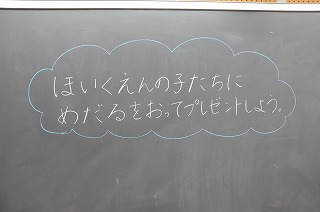 ほいくえんの子たちに
めだるをおってプレゼントしよう。